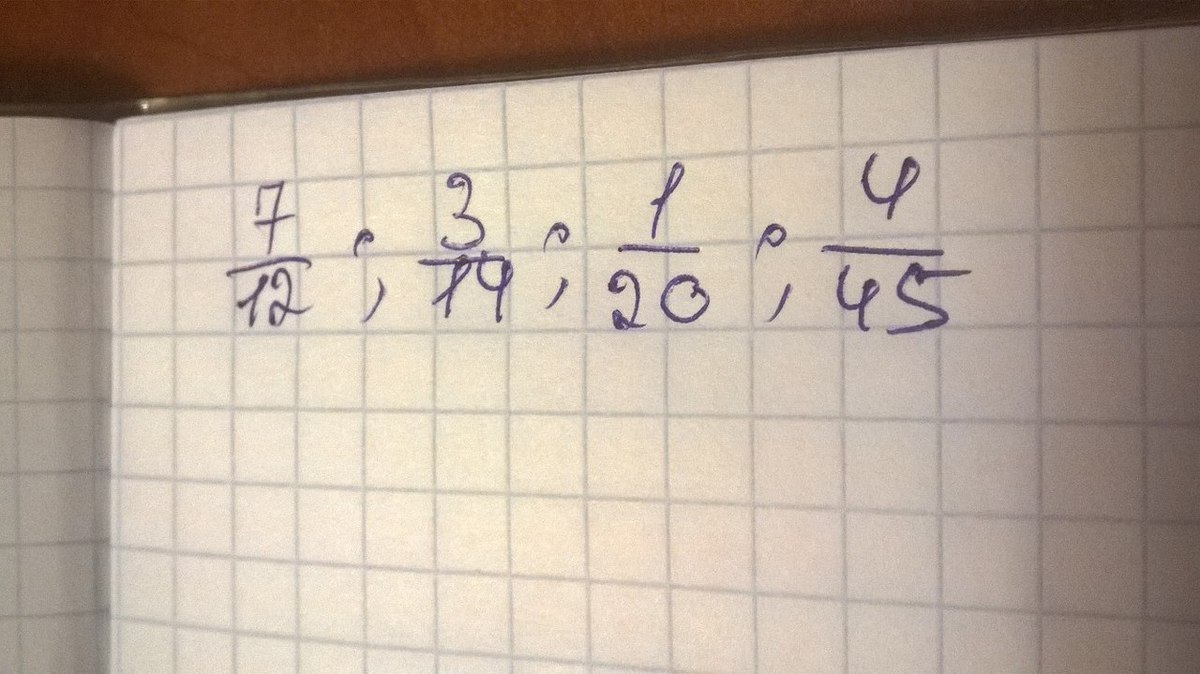 7/12 ; 3/14 ; 1/20 ; 4/45